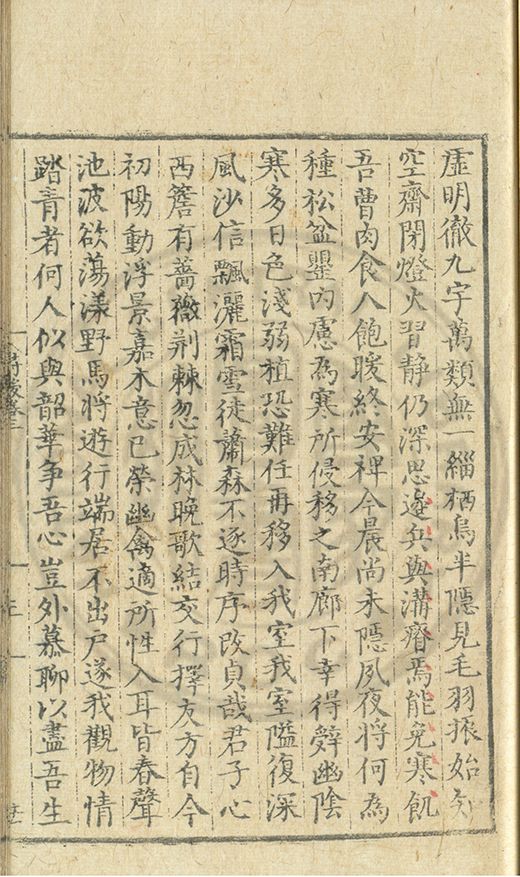 虛明徹九字萬類無一緇栖烏半隱見毛羽振始知
空齋閉燈火習静仍深思邊兵與溝瘠焉能免寒飢
吾曹肉食人飽暖終安裨今晨尚未隱夙夜將何為
種松盆罌内慮為寒所侵移之南廊下幸得辤幽陰
寒多日色淺弱植恐難任再移入我室我室隘復深
風沙信飄灑霜雪徒蕭森不逐時序改貞哉君子心
西簷有薔薇荆棘忽成林晚歌結交行擇友方自今
初陽動浮景嘉木意已榮幽禽適所性入耳皆春聲
池波欲蕩漾野馬將遊行端居不出戶遂我觀物情
踏青者何人似與韶華争吾心豈外慕聊以盡吾生